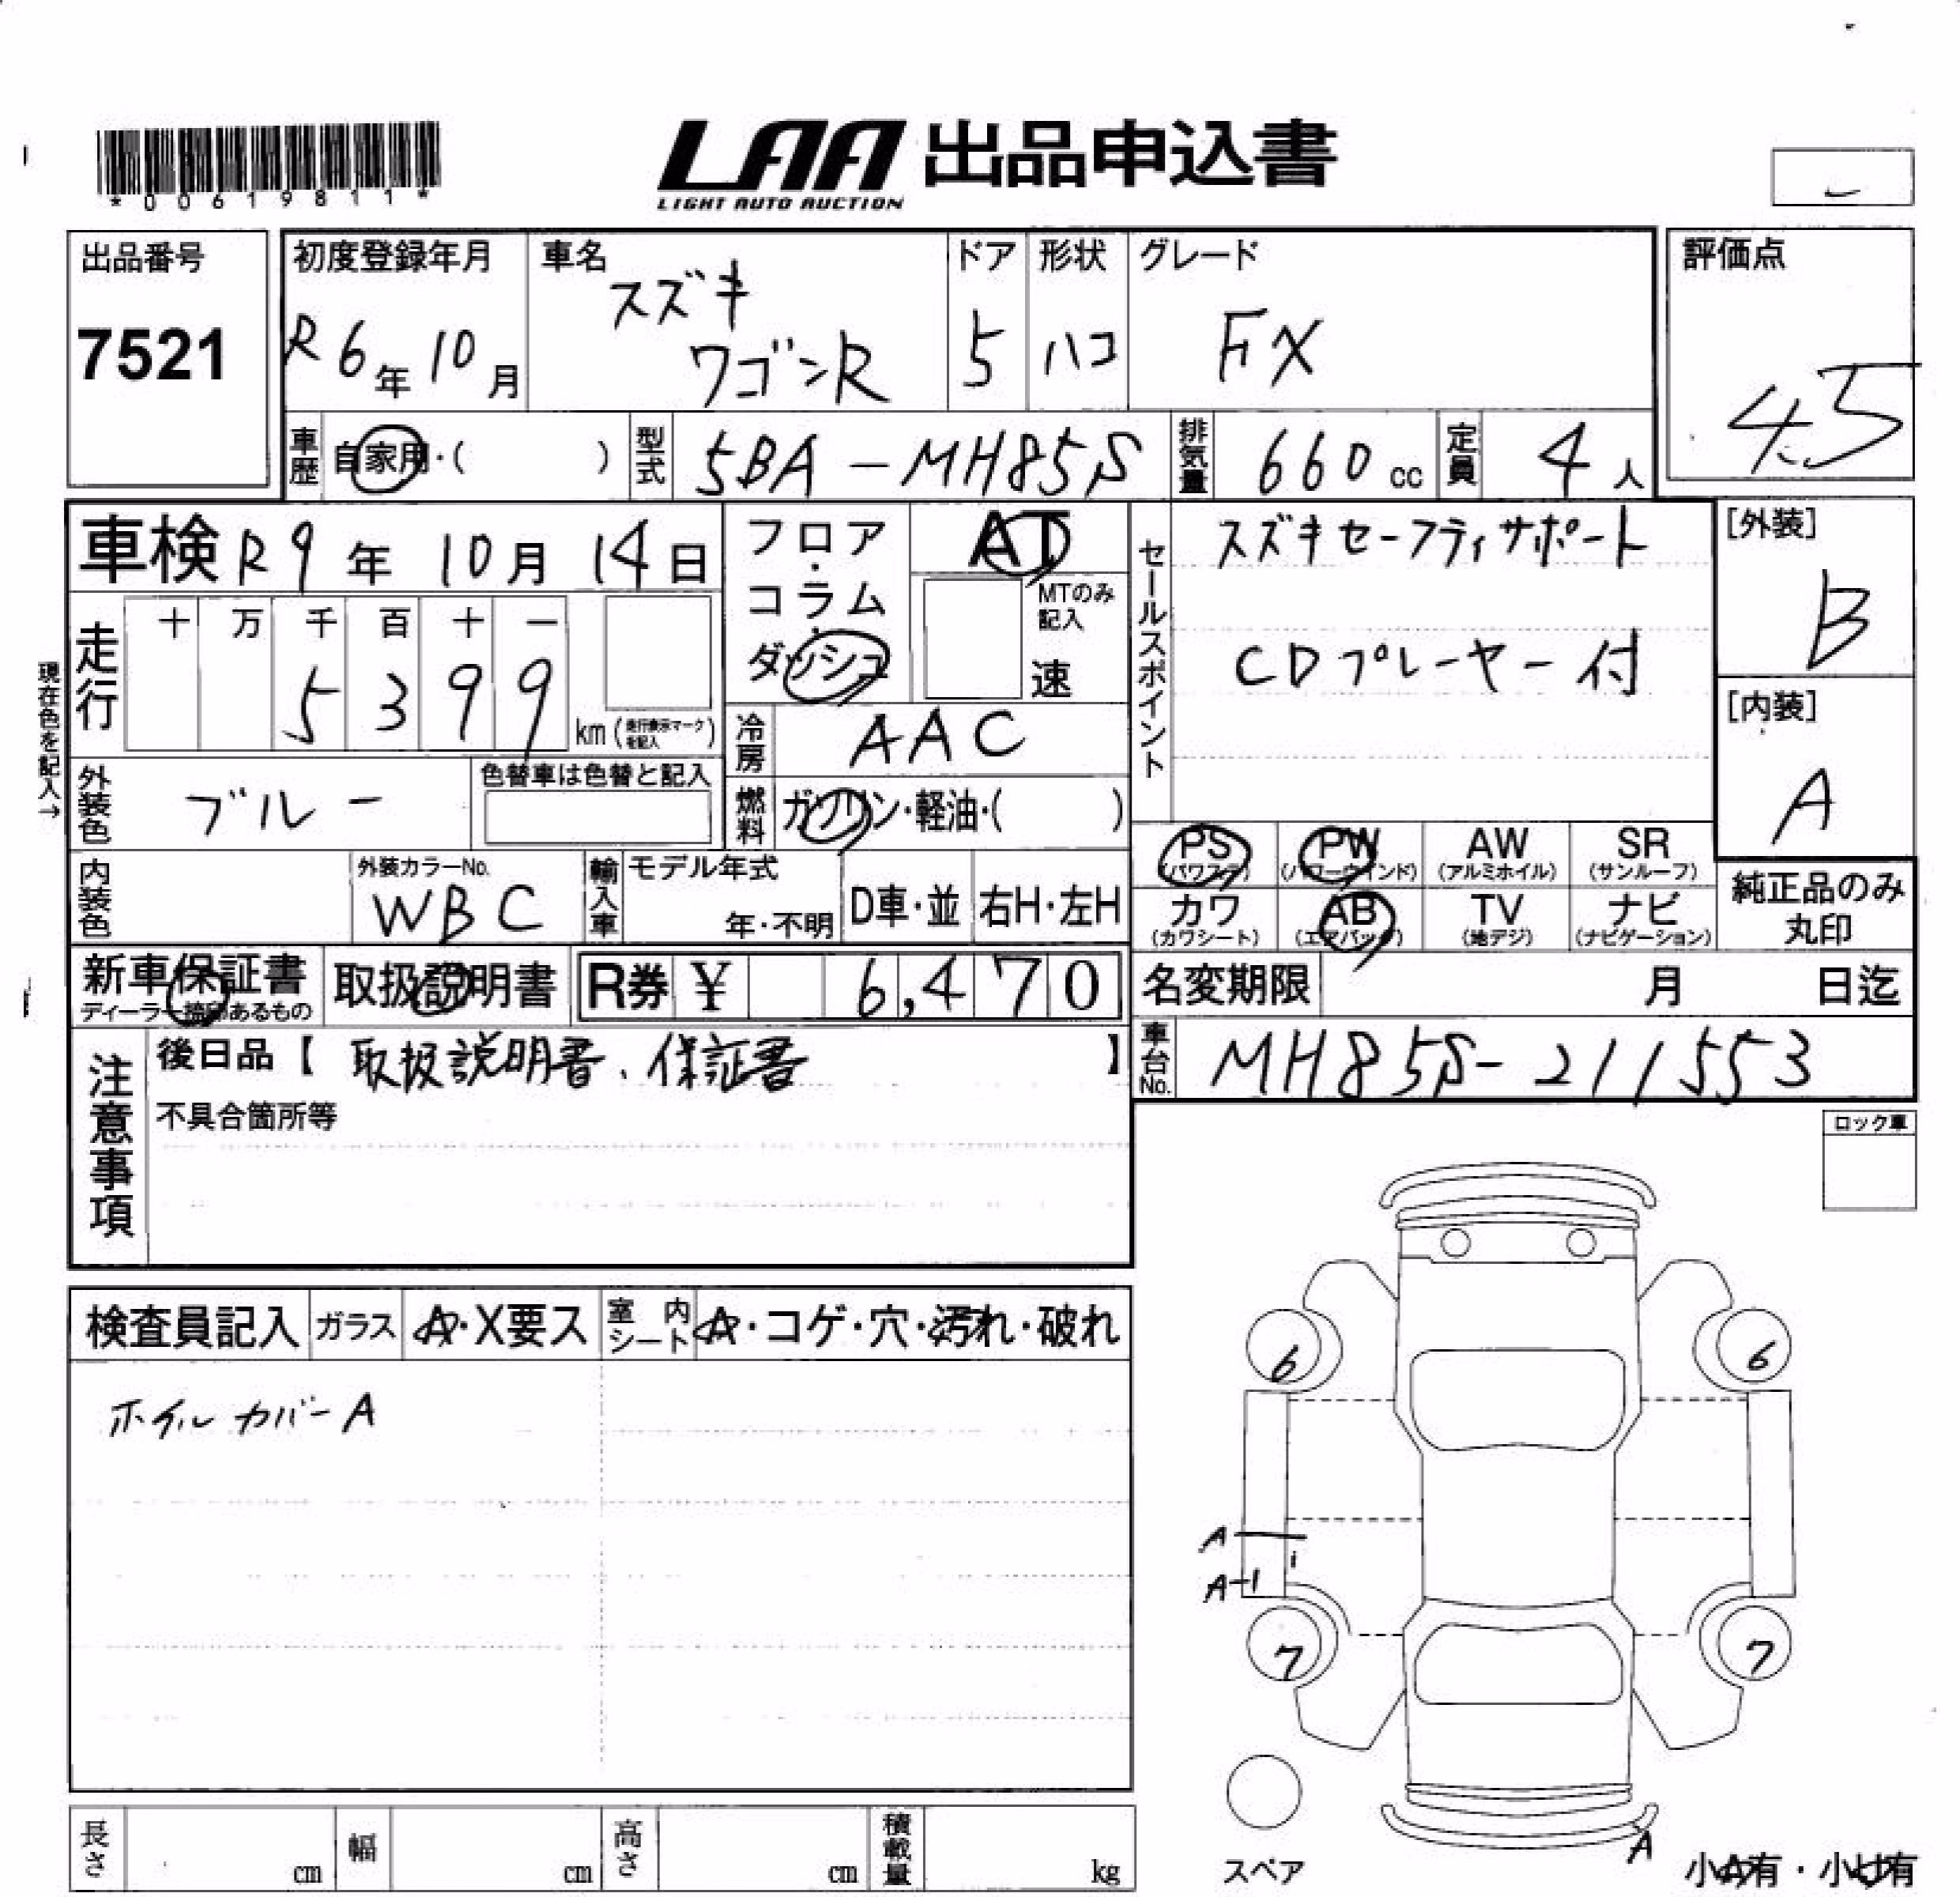 *00619811*
LAA 出品申込書
LIGHT AUTO AUCTION
出品番号
7521
初度登録年月
R6年10月
車名
スズキ
ワゴンR
ドア
5
形状
ハコ
グレード
FX
評価点
4.5
車歴
自家用・( )
型式
5BA-MH85S
排気量
660cc
定員
4人
車検 R9年10月14日
フロア・コラム・ダッシュ
AT
MTのみ記入
速
セールスポイント
スズキセーフティサポート
CDプレーヤー付
[外装]
B
[内装]
A
現在色を記入→
走行
十 万 千 百 十 一
5 3 9 9
km(走行表示マークを記入)
冷房
AAC
外装色
ブルー
色替車は色替と記入
燃料
ガソリン・軽油・( )
PS
(パワステ)
PW
(パワーウインド)
AW
(アルミホイル)
SR
(サンルーフ)
カワ
(カワシート)
AB
(エアバック)
TV
(地デジ)
ナビ
(ナビゲーション)
純正品のみ
丸印
内装色
外装カラーNo.
WBC
輸入車
モデル年式
年・不明
D車・並
右H・左H
新車保証書
ディーラー捺印あるもの
取扱説明書
R券 ¥ 6,470
名変期限 月 日迄
注意事項
後日品【 取扱説明書、保証書 】
不具合箇所等
車台No.
MH85S-211553
ロック車
検査員記入
ガラス
A・X要ス
室内シート
A・コゲ・穴・汚れ・破れ
ホイルカバーA
6
6
A
A-1
7
7
スペア
A
小A有・小U有
長さ cm
幅 cm
高さ cm
積載量 kg